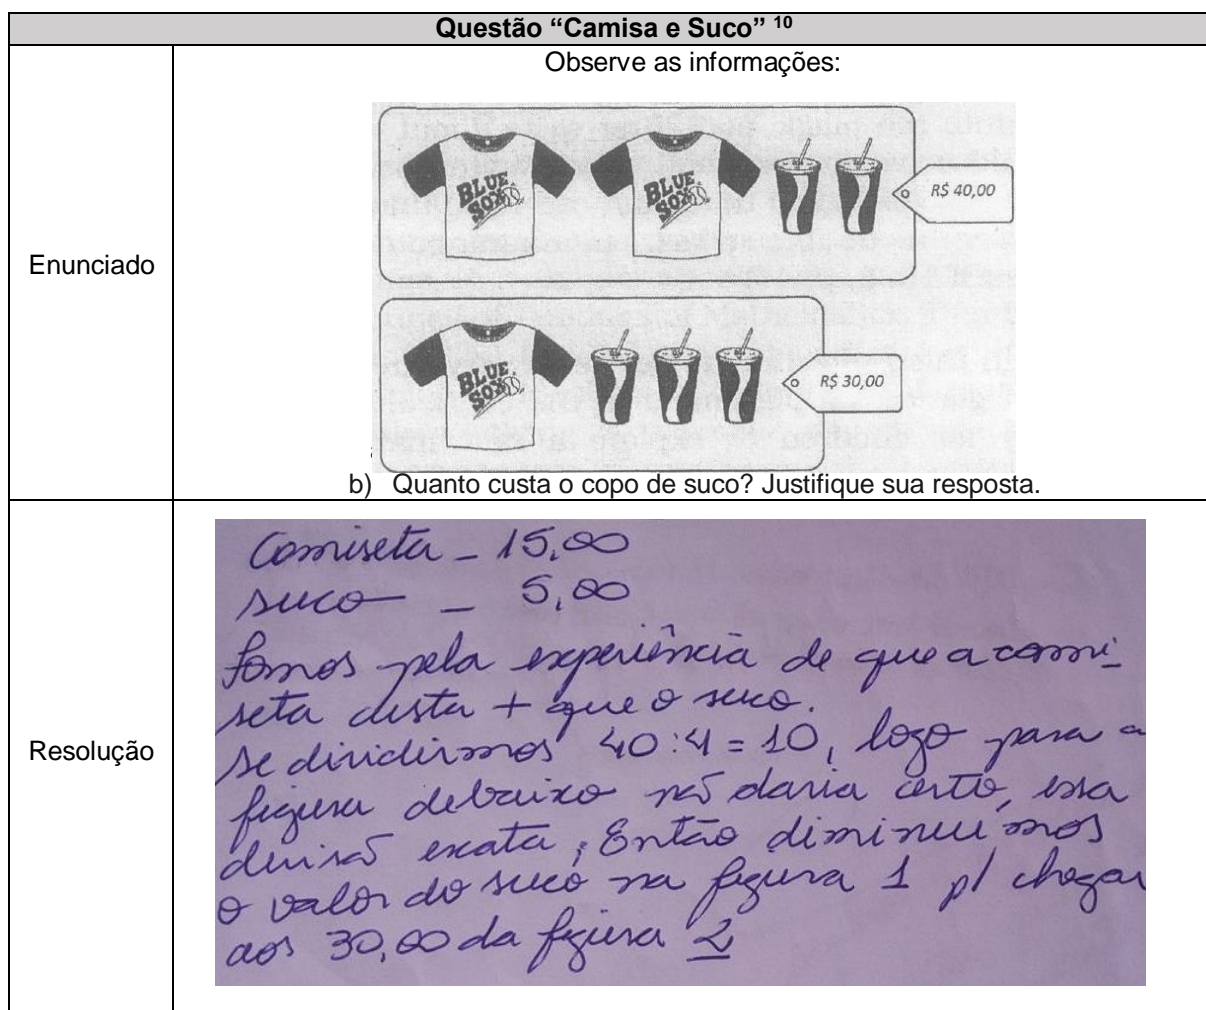 Questão “Camisa e Suco” 10
Enunciado
Observe as informações:
BLUE
SOX
BLUE
SOX
R$ 40,00
BLUE
SOX
R$ 30,00
b) Quanto custa o copo de suco? Justifique sua resposta.
Resolução
Camiseta - 15,00
suco - 5,00
fomos pela experiência de que a cami-
seta custa + que o suco.
se dividirmos 40:4 = 10, logo para a
figura debaixo não daria certo, essa
divisão exata, Então diminuímos
o valor do suco na figura 1 p/ chegar
aos 30,00 da figura 2